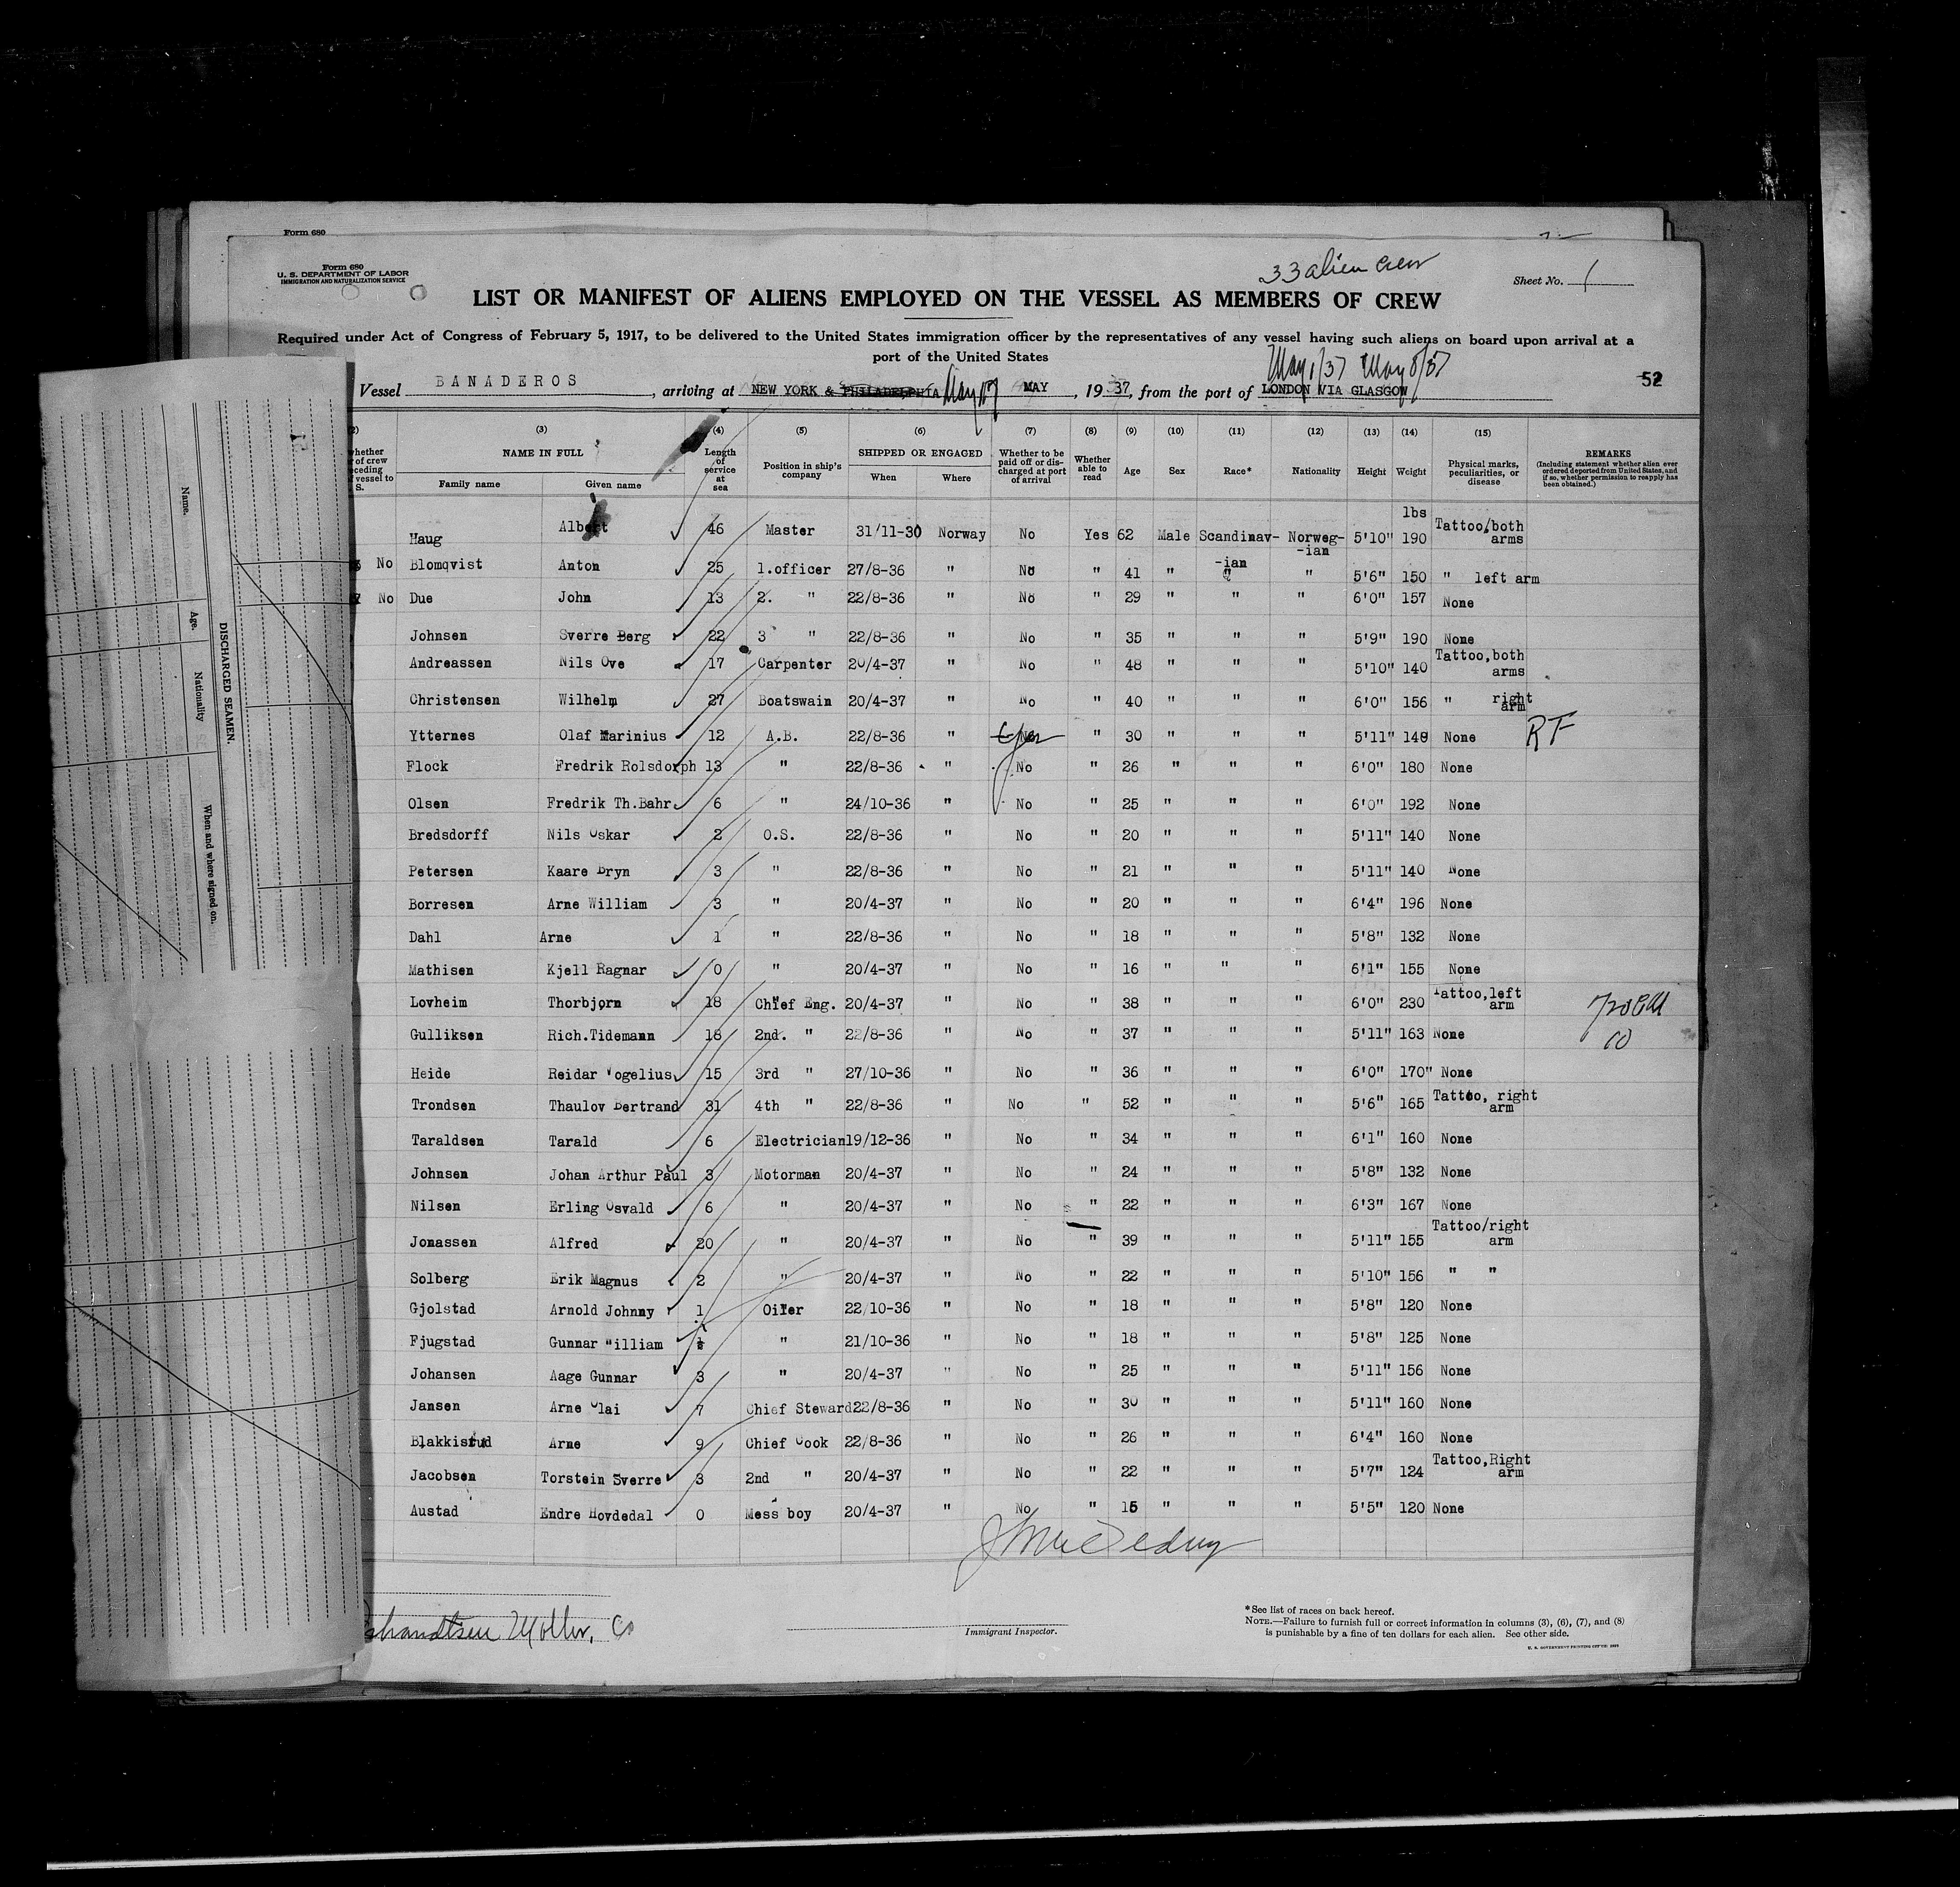 Form 680
Form 680
U. S. DEPARTMENT OF LABOR
IMMIGRATION AND NATURALIZATION SERVICE
33 alien crew
Sheet No. 1
LIST OR MANIFEST OF ALIENS EMPLOYED ON THE VESSEL AS MEMBERS OF CREW
Required under Act of Congress of February 5, 1917, to be delivered to the United States immigration officer by the representatives of any vessel having such aliens on board upon arrival at a
port of the United States
May 1/37 May 8/37
Vessel BANADEROS, arriving at NEW YORK & PHILADELPHIA May 17 MAY, 1937, from the port of LONDON VIA GLASGOW
52
(3) (4) (5) (6) (7) (8) (9) (10) (11) (12) (13) (14) (15)
NAME IN FULL Length of service at sea Position in ship's company SHIPPED OR ENGAGED Whether to be paid off or discharged at port of arrival Whether able to read Age Sex Race* Nationality Height Weight Physical marks, peculiarities, or disease REMARKS
(Including statement whether alien ever ordered deported from United States, and if so, whether permission to reapply has been obtained.)
Family name Given name When Where
Haug Albert 46 Master 31/11-30 Norway No Yes 62 Male Scandinav-ian Norweg-ian 5'10" lbs 190 Tattoo/both arms
No Blomqvist Anton 25 1.officer 27/8-36 " No " 41 " " " 5'6" 150 " left arm
No Due John 13 2. " 22/8-36 " No " 29 " " " 6'0" 157 None
Johnsen Sverre Berg 22 3 " 22/8-36 " No " 35 " " " 5'9" 190 None
Andreassen Nils Ove 17 Carpenter 20/4-37 " No " 48 " " " 5'10" 140 Tattoo,both arms
Christensen Wilhelm 27 Boatswain 20/4-37 " No " 40 " " " 6'0" 156 " right arm
Ytternes Olaf Marinius 12 A.B. 22/8-36 " No Yes " 30 " " " 5'11" 148 None RF
Flock Fredrik Rolsdorph 13 " 22/8-36 " No " 26 " " " 6'0" 180 None
Olsen Fredrik Th.Bahr 6 " 24/10-36 " No " 25 " " " 6'0" 192 None
Bredsdorff Nils Oskar 2 O.S. 22/8-36 " No " 20 " " " 5'11" 140 None
Petersen Kaare Bryn 3 " 22/8-36 " No " 21 " " " 5'11" 140 None
Borresen Arne William 3 " 20/4-37 " No " 20 " " " 6'4" 196 None
Dahl Arne 1 " 22/8-36 " No " 18 " " " 5'8" 132 None
Mathisen Kjell Ragnar 0 " 20/4-37 " No " 16 " " " 6'1" 155 None
Lovheim Thorbjorn 18 Chief Eng. 20/4-37 " No " 38 " " " 6'0" 230 Tattoo,left arm
Gulliksen Rich.Tidemann 18 2nd. " 22/8-36 " No " 37 " " " 5'11" 163 None
Heide Reidar Vogelius 15 3rd " 27/10-36 " No " 36 " " " 6'0" 170" None
Trondsen Thaulov Bertrand 31 4th " 22/8-36 " No " 52 " " " 5'6" 165 Tattoo, right arm
Taraldsen Tarald 6 Electrician 19/12-36 " No " 34 " " " 6'1" 160 None
Johnsen Johan Arthur Paul 3 Motorman 20/4-37 " No " 24 " " " 5'8" 132 None
Nilsen Erling Osvald 6 " 20/4-37 " No " 22 " " " 6'3" 167 None
Jonassen Alfred 20 " 20/4-37 " No " 39 " " " 5'11" 155 Tattoo/right arm
Solberg Erik Magnus 2 " 20/4-37 " No " 22 " " " 5'10" 156 " "
Gjolstad Arnold Johnny 1 Oiler 22/10-36 " No " 18 " " " 5'8" 120 None
Fjugstad Gunnar William " 21/10-36 " No " 18 " " " 5'8" 125 None
Johansen Aage Gunnar 3 " 20/4-37 " No " 25 " " " 5'11" 156 None
Jansen Arne Olai 7 Chief Steward 22/8-36 " No " 30 " " " 5'11" 160 None
Blakkisrud Arne 9 Chief Cook 22/8-36 " No " 26 " " " 6'4" 160 None
Jacobsen Torstein Sverre 3 2nd " 20/4-37 " No " 22 " " " 5'7" 124 Tattoo,Right arm
Austad Endre Hovdedal 0 Mess boy 20/4-37 " No " 15 " " " 5'5" 120 None
Immigrant Inspector.
*See list of races on back hereof.
NOTE.—Failure to furnish full or correct information in columns (3), (6), (7), and (8)
is punishable by a fine of ten dollars for each alien. See other side.
DISCHARGED SEAMEN.
Name.
Age.
Nationality
When and where signed on.